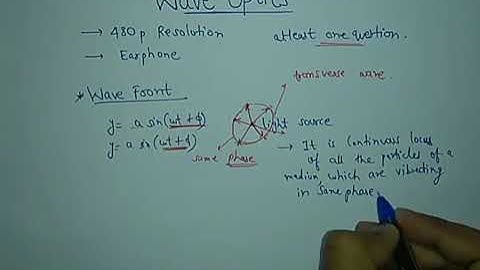 Wave Optics
→ 480p Resolution
atleast one question.
→ Earphone
transverse wave.
* Wave Front
y= a sin(wt+ϕ)
light source
y= a sin(wt+ϕ)
same phase
→ It is continuous locus
of all the particles of a
medium which are vibrating
in same phase.